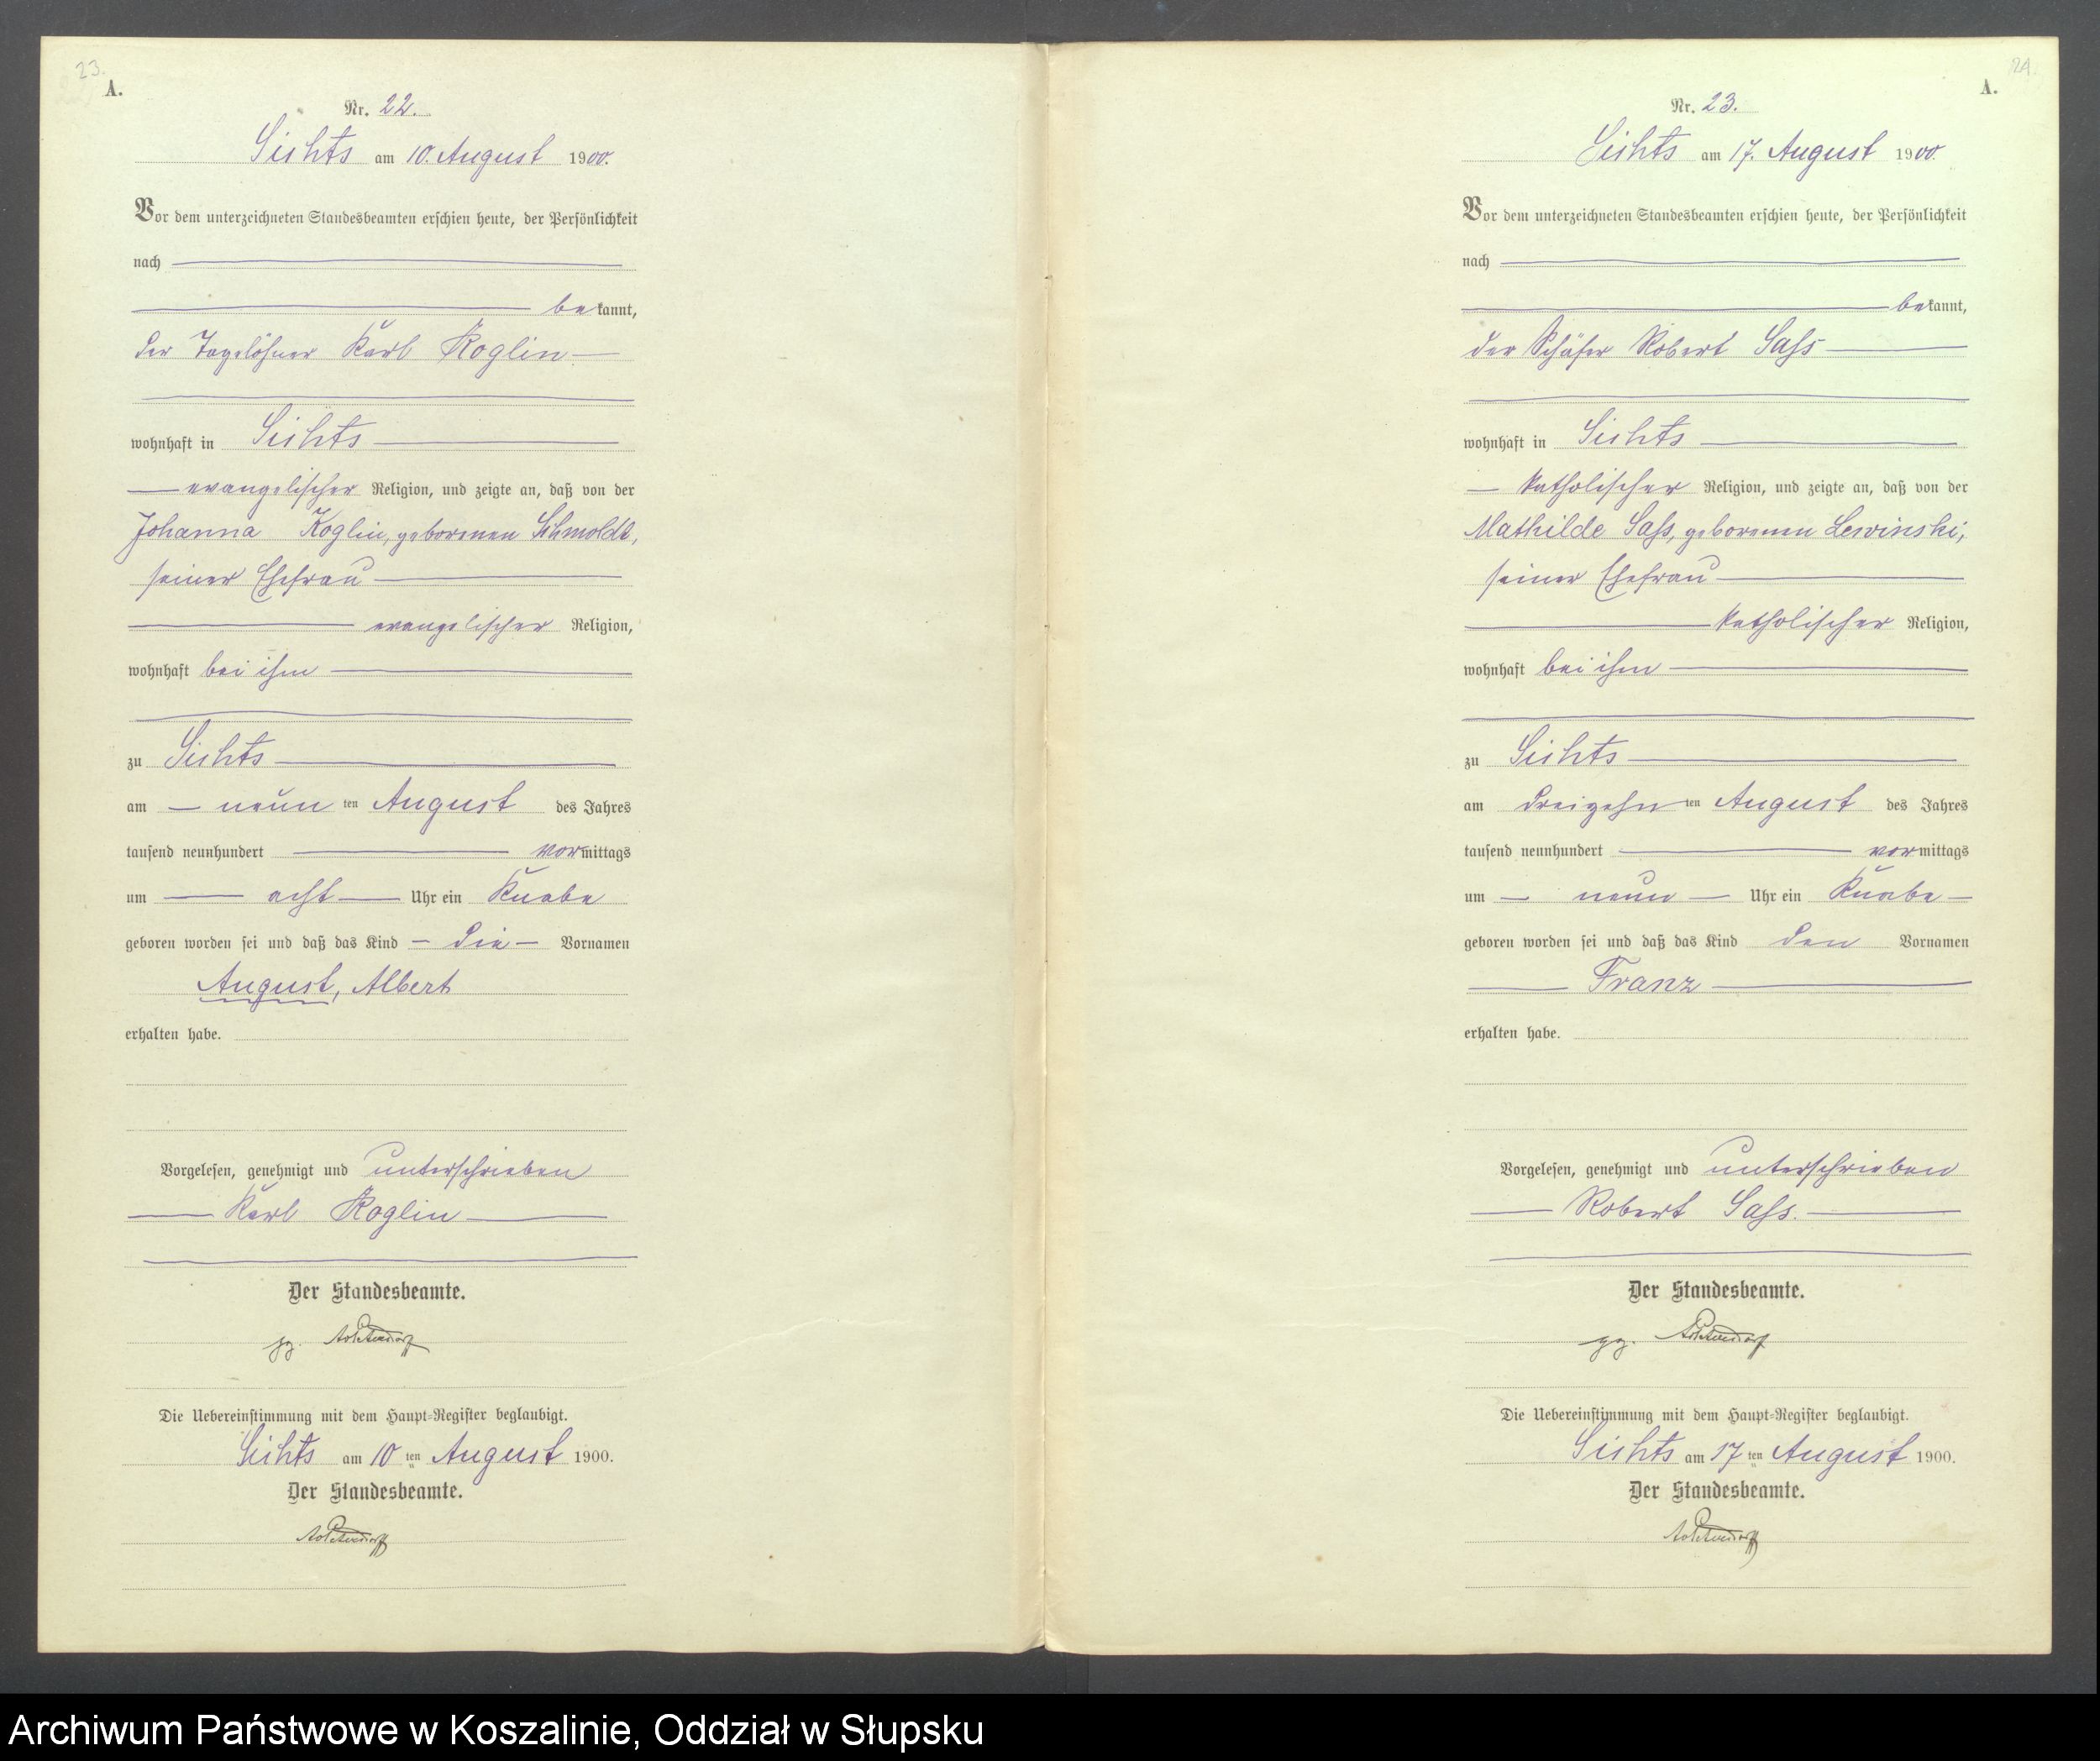 23.
A.
Nr. 22.
Sichts am 10. August 1900.
Vor dem unterzeichneten Standesbeamten erschien heute, der Persönlichkeit
nach
bekannt,
der Tagelöhner Karl Koglin
wohnhaft in Sichts
evangelischer Religion, und zeigte an, daß von der
Johanna Koglin, geborenen Schmoldt,
seiner Ehefrau
evangelischer Religion,
wohnhaft bei ihm
zu Sichts
am neun ten August des Jahres
tausend neunhundert vormittags
um acht Uhr ein Knabe
geboren worden sei und daß das Kind die Vornamen
August, Albert
erhalten habe.
Vorgelesen, genehmigt und unterschrieben
Karl Koglin
Der Standesbeamte.
gz.
Die Uebereinstimmung mit dem Haupt-Register beglaubigt.
Sichts am 10 ten August 1900.
Der Standesbeamte.
24.
A.
Nr. 23.
Sichts am 17. August 1900.
Vor dem unterzeichneten Standesbeamten erschien heute, der Persönlichkeit
nach
bekannt,
der Schäfer Robert Sass
wohnhaft in Sichts
katholischer Religion, und zeigte an, daß von der
Mathilde Sass, geborenen Lewinski,
seiner Ehefrau
katholischer Religion,
wohnhaft bei ihm
zu Sichts
am dreizehn ten August des Jahres
tausend neunhundert vormittags
um neun Uhr ein Knabe
geboren worden sei und daß das Kind den Vornamen
Franz
erhalten habe.
Vorgelesen, genehmigt und unterschrieben
Robert Sass.
Der Standesbeamte.
gz.
Die Uebereinstimmung mit dem Haupt-Register beglaubigt.
Sichts am 17 ten August 1900.
Der Standesbeamte.
Archiwum Państwowe w Koszalinie, Oddział w Słupsku